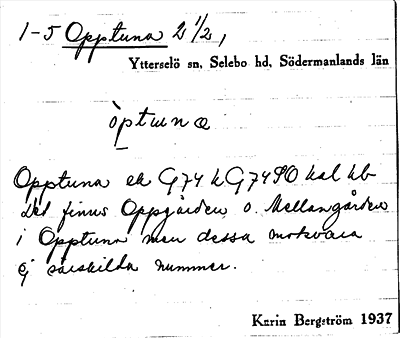 1-5 Opptuna 2 1/2,
Ytterselö sn, Selebo hd, Södermanlands län
òptuna
Opptuna ek G74 k G74SO kal kb
Det finns Oppgården o. Mellangården
i Opptuna men dessa motsvara
ej särskilda nummer.
Karin Bergström 1937